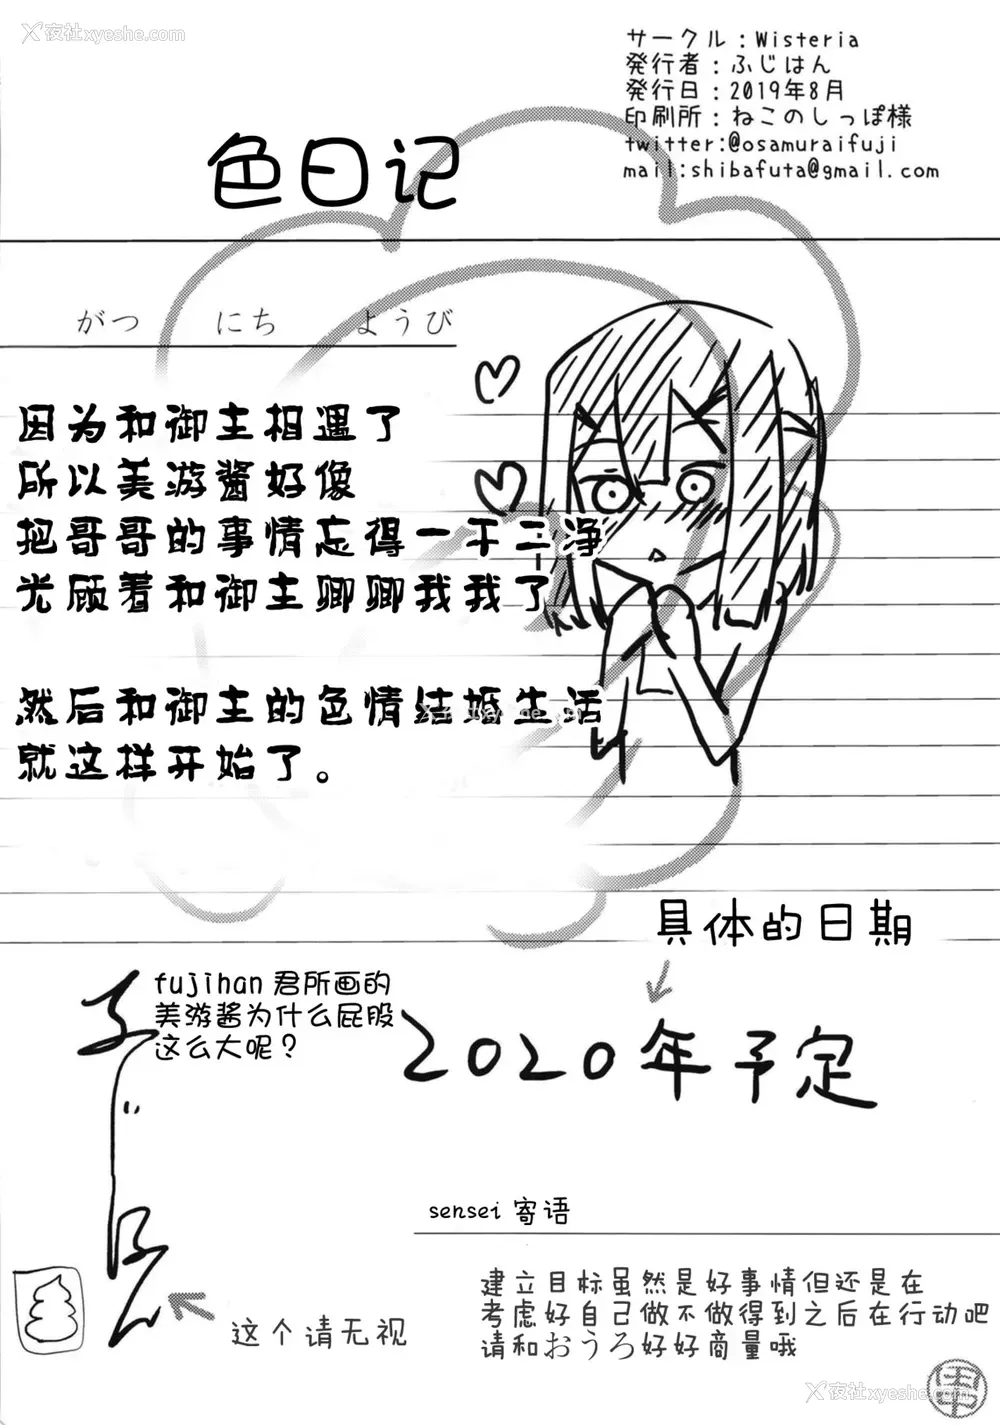 夜社xyeshe.com
夜社xyeshe.com
サークル：Wisteria
発行者：ふじはん
発行日：2019年8月
印刷所：ねこのしっぽ様
twitter:@osamuraifuji
mail:shibafuta@gmail.com
色日记
がつ にち ようび
因为和御主相遇了
所以美游酱好像
把哥哥的事情忘得一干二净
光顾着和御主卿卿我我了
然后和御主的色情结婚生活
就这样开始了。
具体的日期
fujihan君所画的
美游酱为什么屁股
这么大呢？
2020年予定
sensei寄语
这个请无视
建立目标虽然是好事情但还是在
考虑好自己做不做得到之后在行动吧
请和おうろ好好商量哦
夜社xyeshe.com